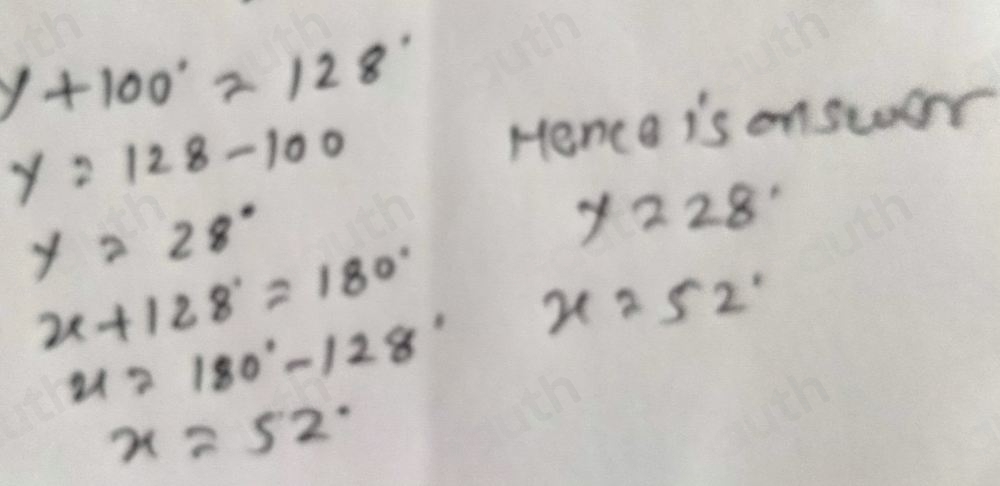 y + 100° = 128°
y = 128 - 100
y = 28°
x + 128° = 180°
x = 180° - 128°
x = 52°
Hence is answer
y = 28°
x = 52°